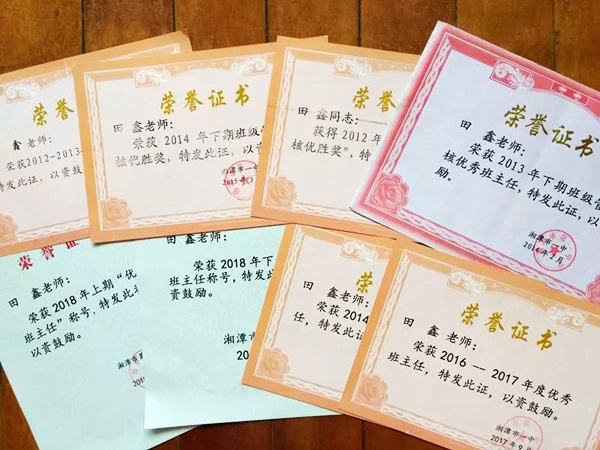 荣誉证书
鑫老师:
荣获2012-2013
证,以资鼓
荣誉证书
田 鑫老师:
荣获 2014 年下期班级管
核优胜奖,特发此证,以资
湘潭市一中
2015年3
荣誉证书
田 鑫同志:
获得 2012 年
核优胜奖”,
荣誉证书
田 鑫老师:
荣获 2013 年下期班级管
核优秀班主任,特发此证,以资鼓
励。
湘潭市一中
2014年2月
荣誉证
田 鑫老师:
荣获 2018 年上期“优
班主任”称号,特发此
以资鼓励。
湘潭市第
201
田 鑫老师:
荣获 2018 年下
班主任称号,特发此
资鼓励。
湘潭
20
荣
田 鑫老师:
荣获 2014
任,特发此
荣誉证书
田 鑫老师:
荣获 2016 — 2017 年度优秀
班主任,特发此证,以资鼓励。
湘潭市一中
2017年9月